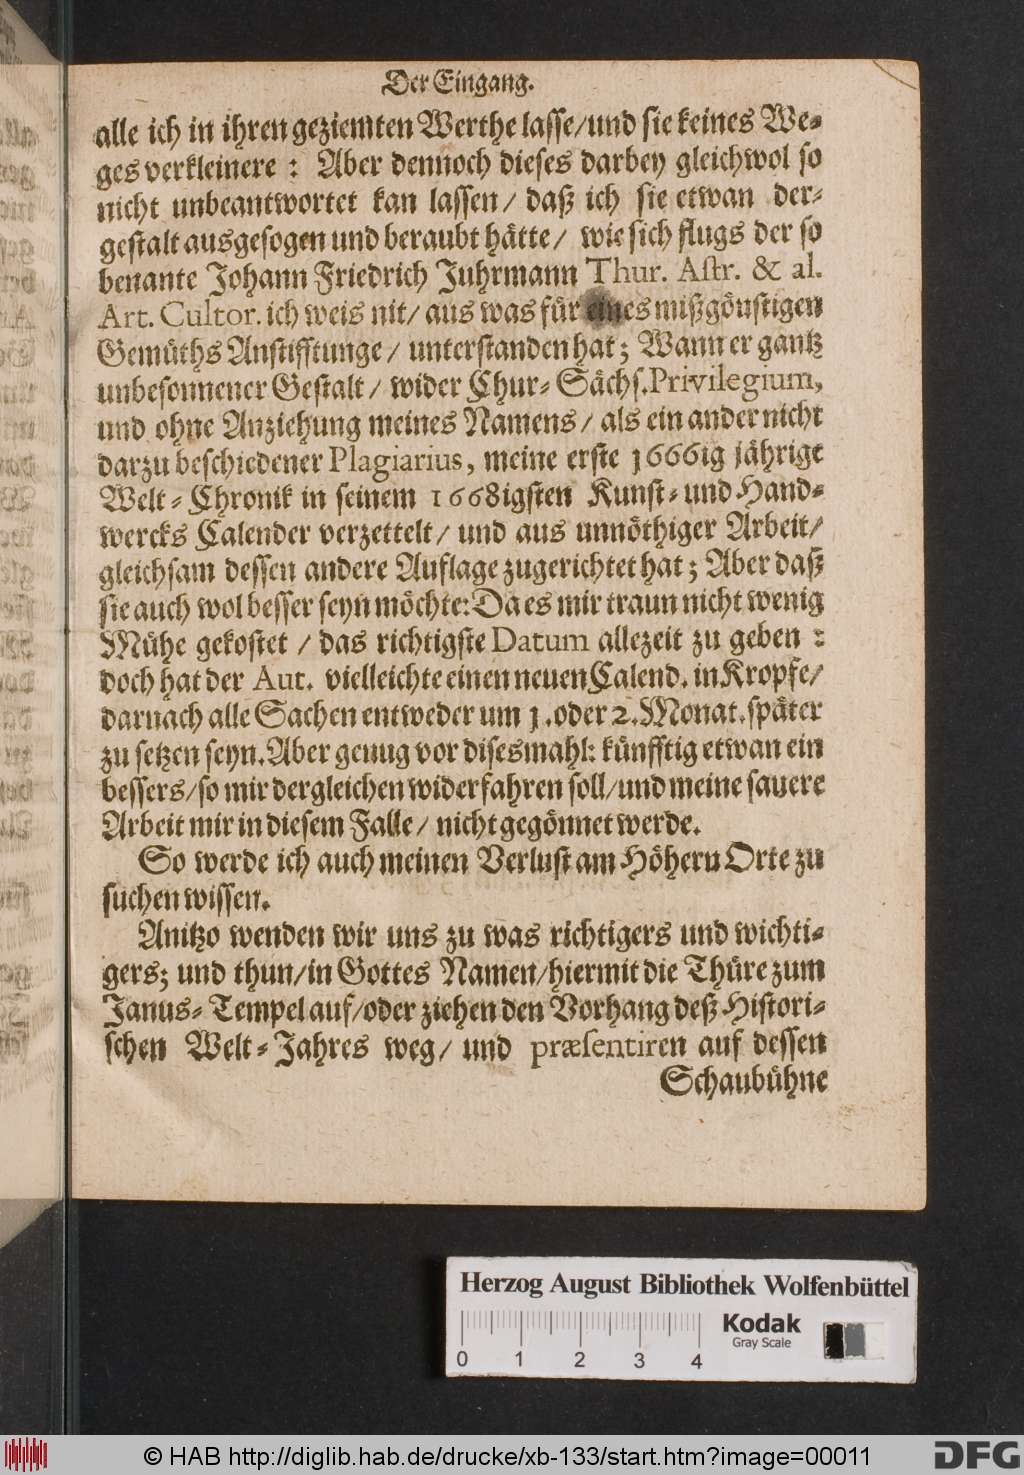 Der Eingang.
alle ich in ihren geziemten Werthe lasse/und sie keines We-
ges verkleinere : Aber dennoch dieses darbey gleichwol so
nicht unbeantwortet kan lassen/ daß ich sie etwan der-
gestalt ausgesogen und beraubt hätte/ wie sich flugs der so
benante Johann Friedrich Juhrmann Thur. Astr. & al.
Art. Cultor. ich weis nit/ aus was für eines mißgönstigen
Gemüths Anstifftunge/ unterstanden hat; Wann er gantz
unbesonnener Gestalt/ wider Chur-Sächs. Privilegium,
und ohne Anziehung meines Namens/ als ein ander nicht
darzu beschiedener Plagiarius, meine erste 1666ig jährige
Welt-Chronik in seinem 1668igsten Kunst-und Hand-
wercks Calender verzettelt/ und aus unnöthiger Arbeit/
gleichsam dessen andere Auflage zugerichtet hat; Aber daß
sie auch wol besser seyn möchte: Da es mir traun nicht wenig
Mühe gekostet / das richtigste Datum allezeit zu geben :
doch hat der Aut. vielleichte einen neuen Calend. in Kropfe/
darnach alle Sachen entweder um 1. oder 2. Monat. später
zu setzen seyn. Aber genug vor disesmahl: künfftig etwan ein
bessers/so mir dergleichen widerfahren soll/und meine sauere
Arbeit mir in diesem Falle/ nicht gegönnet werde.
So werde ich auch meinen Verlust am Höhern Orte zu
suchen wissen.
Anitzo wenden wir uns zu was richtigers und wichti-
gers; und thun/in Gottes Namen/hiermit die Thüre zum
Janus-Tempel auf/oder ziehen den Vorhang deß Histori-
schen Welt-Jahres weg/ und præsentiren auf dessen
Schaubühne
Herzog August Bibliothek Wolfenbüttel
Kodak
Gray Scale
0 1 2 3 4
© HAB http://diglib.hab.de/drucke/xb-133/start.htm?image=00011
DFG